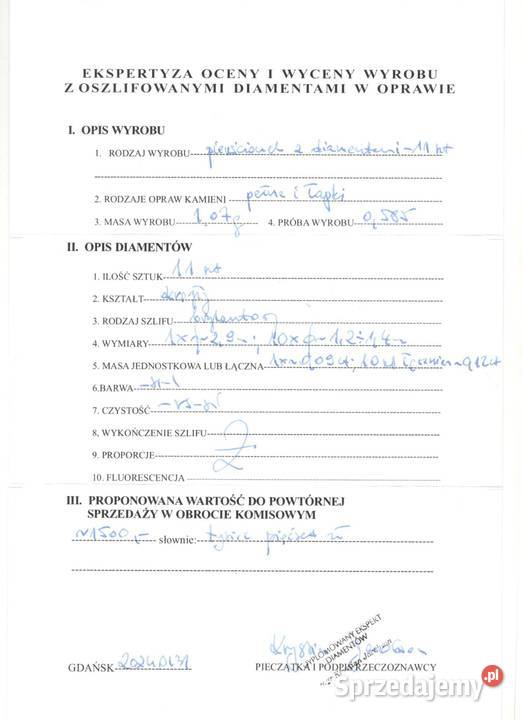 EKSPERTYZA OCENY I WYCENY WYROBU
Z OSZLIFOWANYMI DIAMENTAMI W OPRAWIE
I. OPIS WYROBU
1. RODZAJ WYROBU pierścionek z diamentami - 11 szt
2. RODZAJE OPRAW KAMIENI pełne i łapki
3. MASA WYROBU 1,07g 4. PRÓBA WYROBU 0,585
II. OPIS DIAMENTÓW
1. ILOŚĆ SZTUK 11 szt
2. KSZTAŁT okrągły
3. RODZAJ SZLIFU brylantowy
4. WYMIARY 1x φ~2,9 ; 10x φ~1,2÷1,4
5. MASA JEDNOSTKOWA LUB ŁĄCZNA 1x~0,09 ct; 10szt łącznie~0,12ct
6.BARWA -H-I
7. CZYSTOŚĆ -VS-SI
8. WYKOŃCZENIE SZLIFU
9. PROPORCJE
10. FLUORESCENCJA
III. PROPONOWANA WARTOŚĆ DO POWTÓRNEJ
SPRZEDAŻY W OBROCIE KOMISOWYM
~1500,- słownie: tysiąc pięćset zł
DYPLOMOWANY EKSPERT
DIAMENTÓW
GDAŃSK 20240131 PIECZĄTKA I PODPIS RZECZOZNAWCY
Sprzedajemy.pl